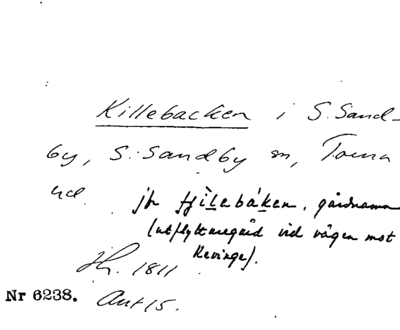 Killebacken i S. Sand-
by, S. Sandby sn, Torna
hd. jfr fjìlebákęn, gårdsnamn
(utflyttaregård vid vägen mot
Revinge).
Jh. 1811
Nr 6238. Ant 15.